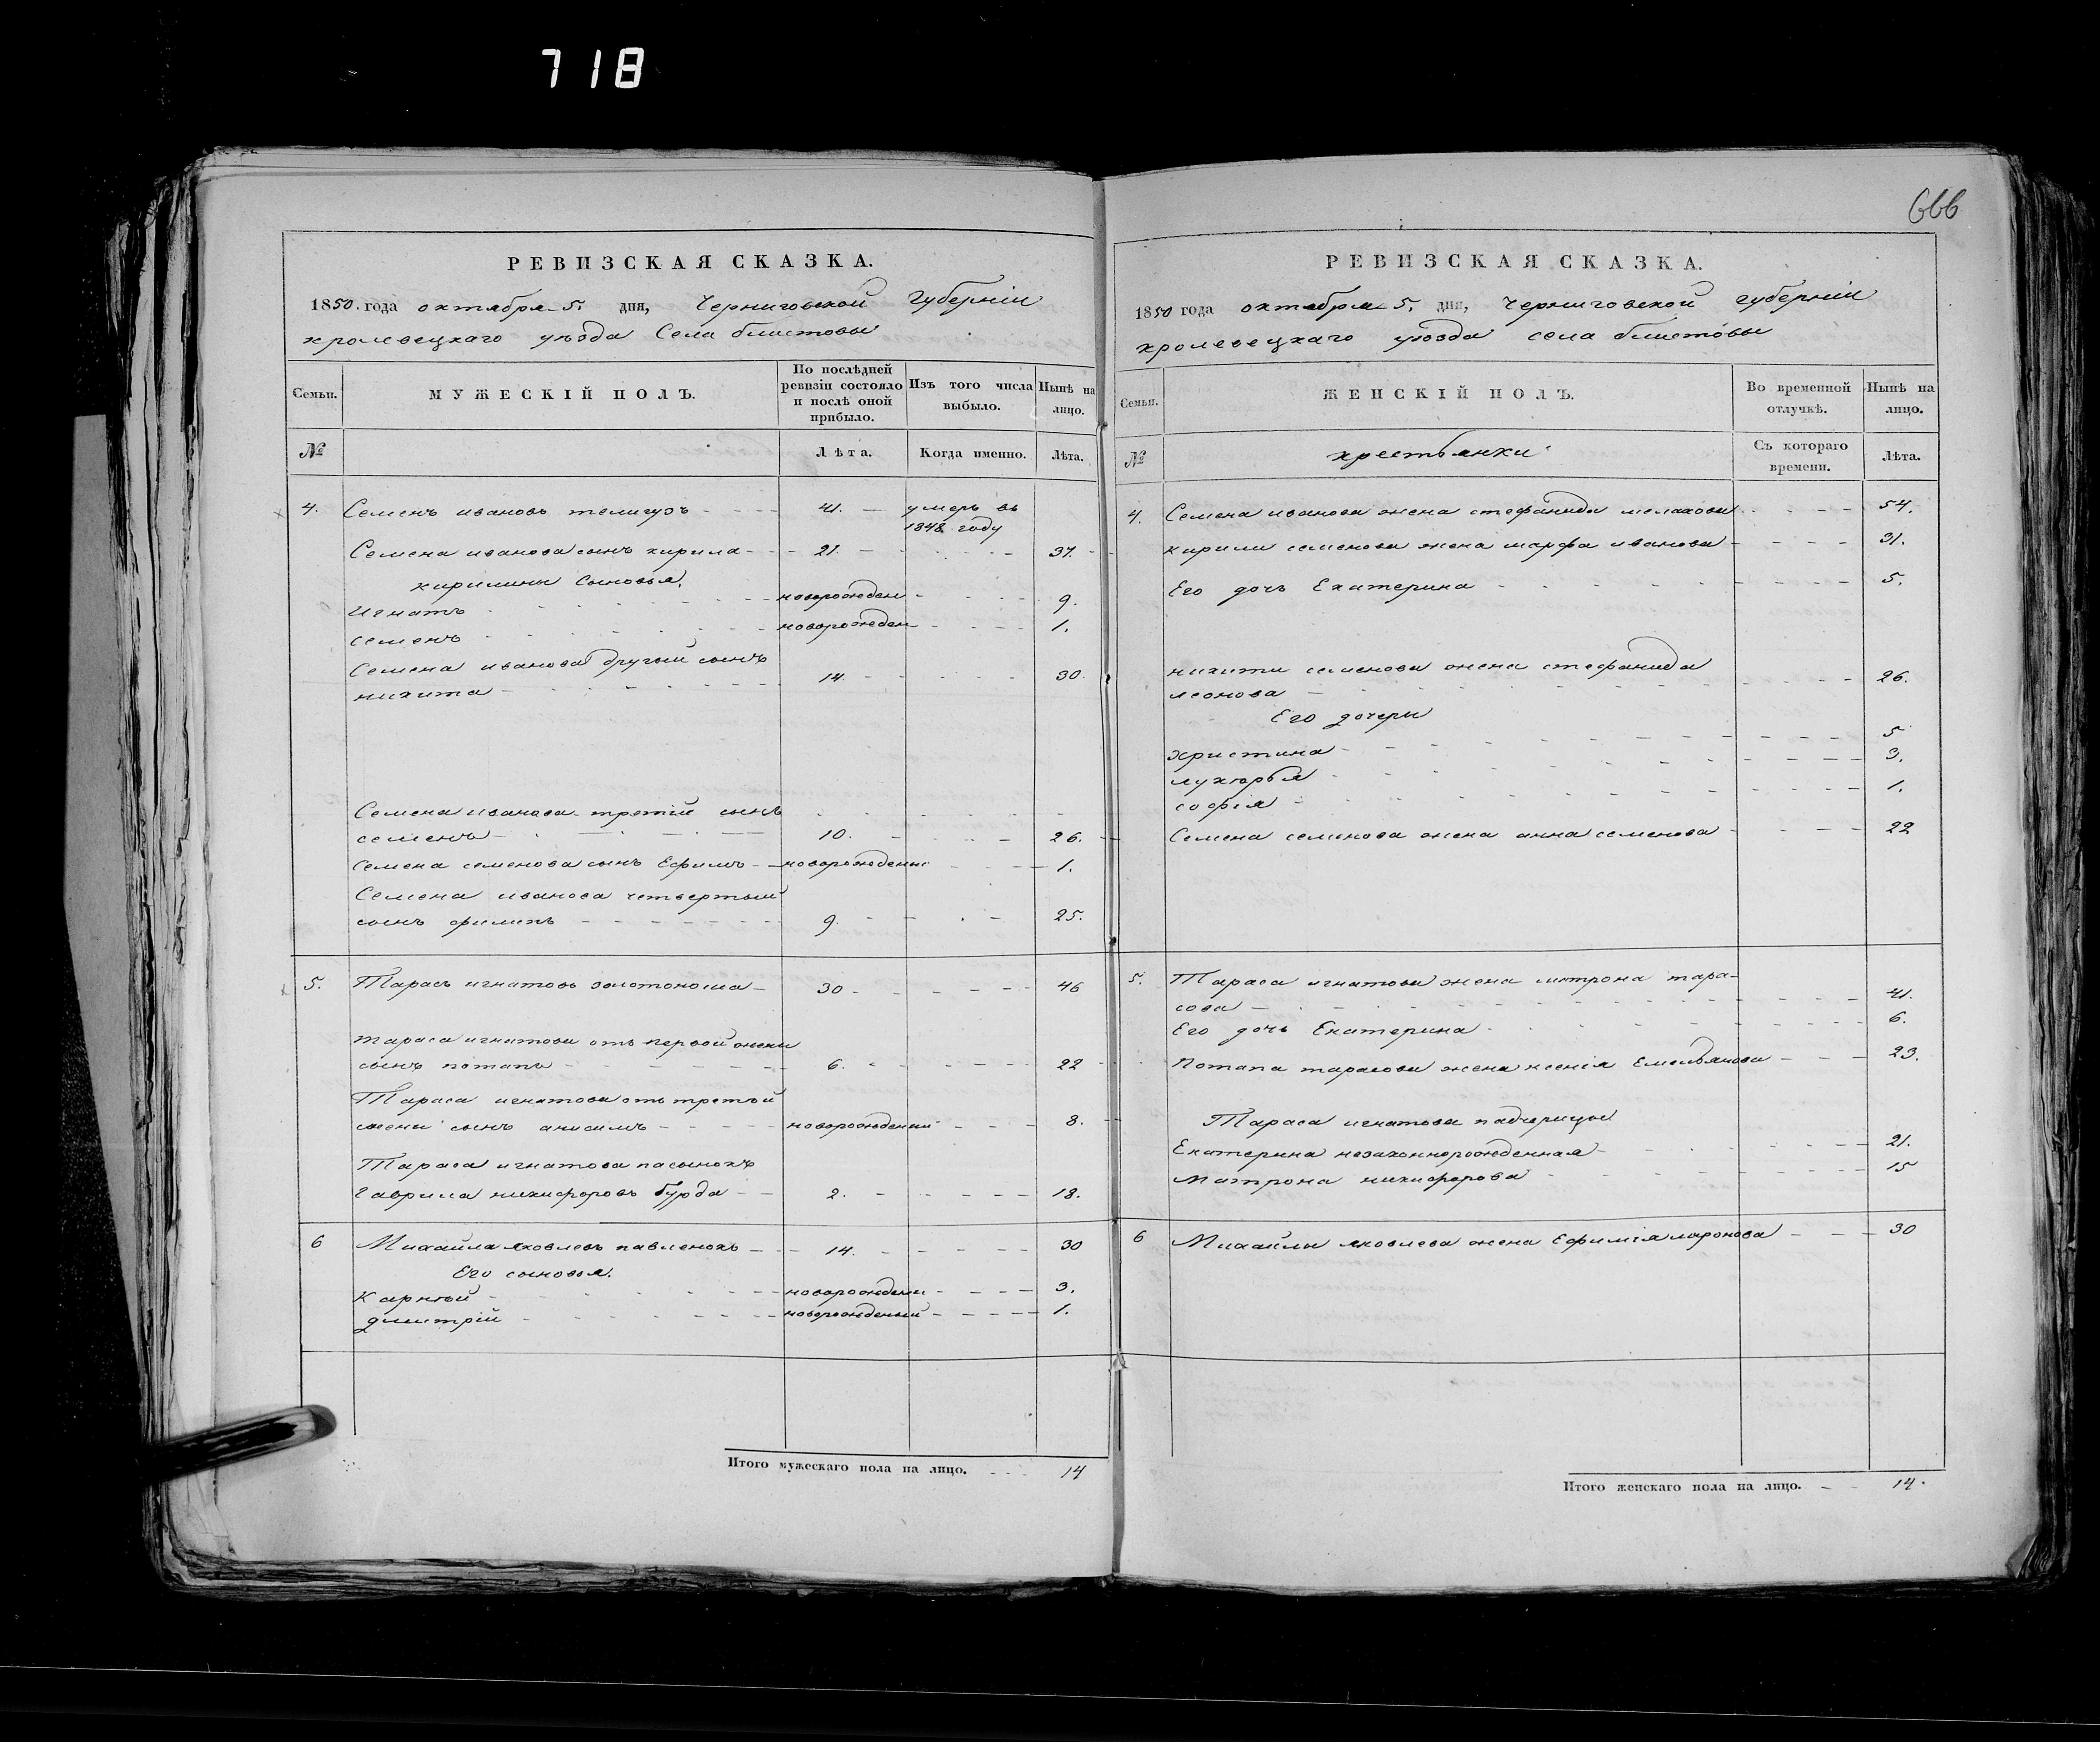 718
666
РЕВИЗСКАЯ СКАЗКА.
1850. года октября 5. дня, Черниговской Губерніи
кролевецкаго уѣзда Села блистовы
Семьи.
МУЖЕСКІЙ ПОЛЪ.
По послѣдней ревизіи состояло и послѣ оной прибыло.
Изъ того числа выбыло.
Нынѣ на лицо.
№
Лѣта.
Когда именно.
Лѣта.
4. Семенъ ивановъ 41. умеръ въ
1848 году
Семена иванова сынъ кирила 21. 37.
кирилины Сыновья.
Игнатъ новорожден 9.
семенъ новорожден 1.
Семена иванова другый сынъ
никита 14. 30.
Семена иванова третій сынъ
семенъ 10. 26.
Семена семенова сынъ Ефимъ новорожденый 1.
Семена иванова четвертый
сынъ филипъ 9. 25.
5. Тарасъ игнатовъ золотоноша 30 46
тараса игнатова отъ первой жены
сынъ потапъ 6. 22
Тараса игнатова отъ третьей
жены сынъ анисимъ новорожденый 8.
Тараса игнатова пасынокъ
Гаврила никифоровъ бурда 2. 18.
6 Михайла яковлевъ павленокъ 14. 30
Его сыновья.
Карней новорожден 3.
дмитрій новорожденый 1.
Итого мужескаго пола на лицо. 14
РЕВИЗСКАЯ СКАЗКА.
1850 года октября 5. дня, Черниговской губерніи
кролевецкаго уѣзда села блистовы
Семьи.
ЖЕНСКІЙ ПОЛЪ.
Во временной отлучкѣ.
Нынѣ на лицо.
№
крестьянки
Съ котораго времени.
Лѣта.
4. Семена иванова жена стефанида малахова 54.
кирилы семенова жена марфа иванова 31.
Его дочь Екатерина 5.
никиты семенова жена стефанида
леонова 26.
Его дочеры
христина 5
лукерья 3.
софія 1.
Семена семенова жена анна семенова 22
5. Тараса игнатова жена мотрона тара-
сова 41.
Его дочь Екатерина 6.
Потапа тарасова жена ксенія Емельянова 23.
Тараса игнатова падчерицы
Екатерина незаконнорожденная 21.
Матрона никифорова 15
6 Михайлы яковлева жена Ефимія миронова 30
Итого женскаго пола на лицо. 14.